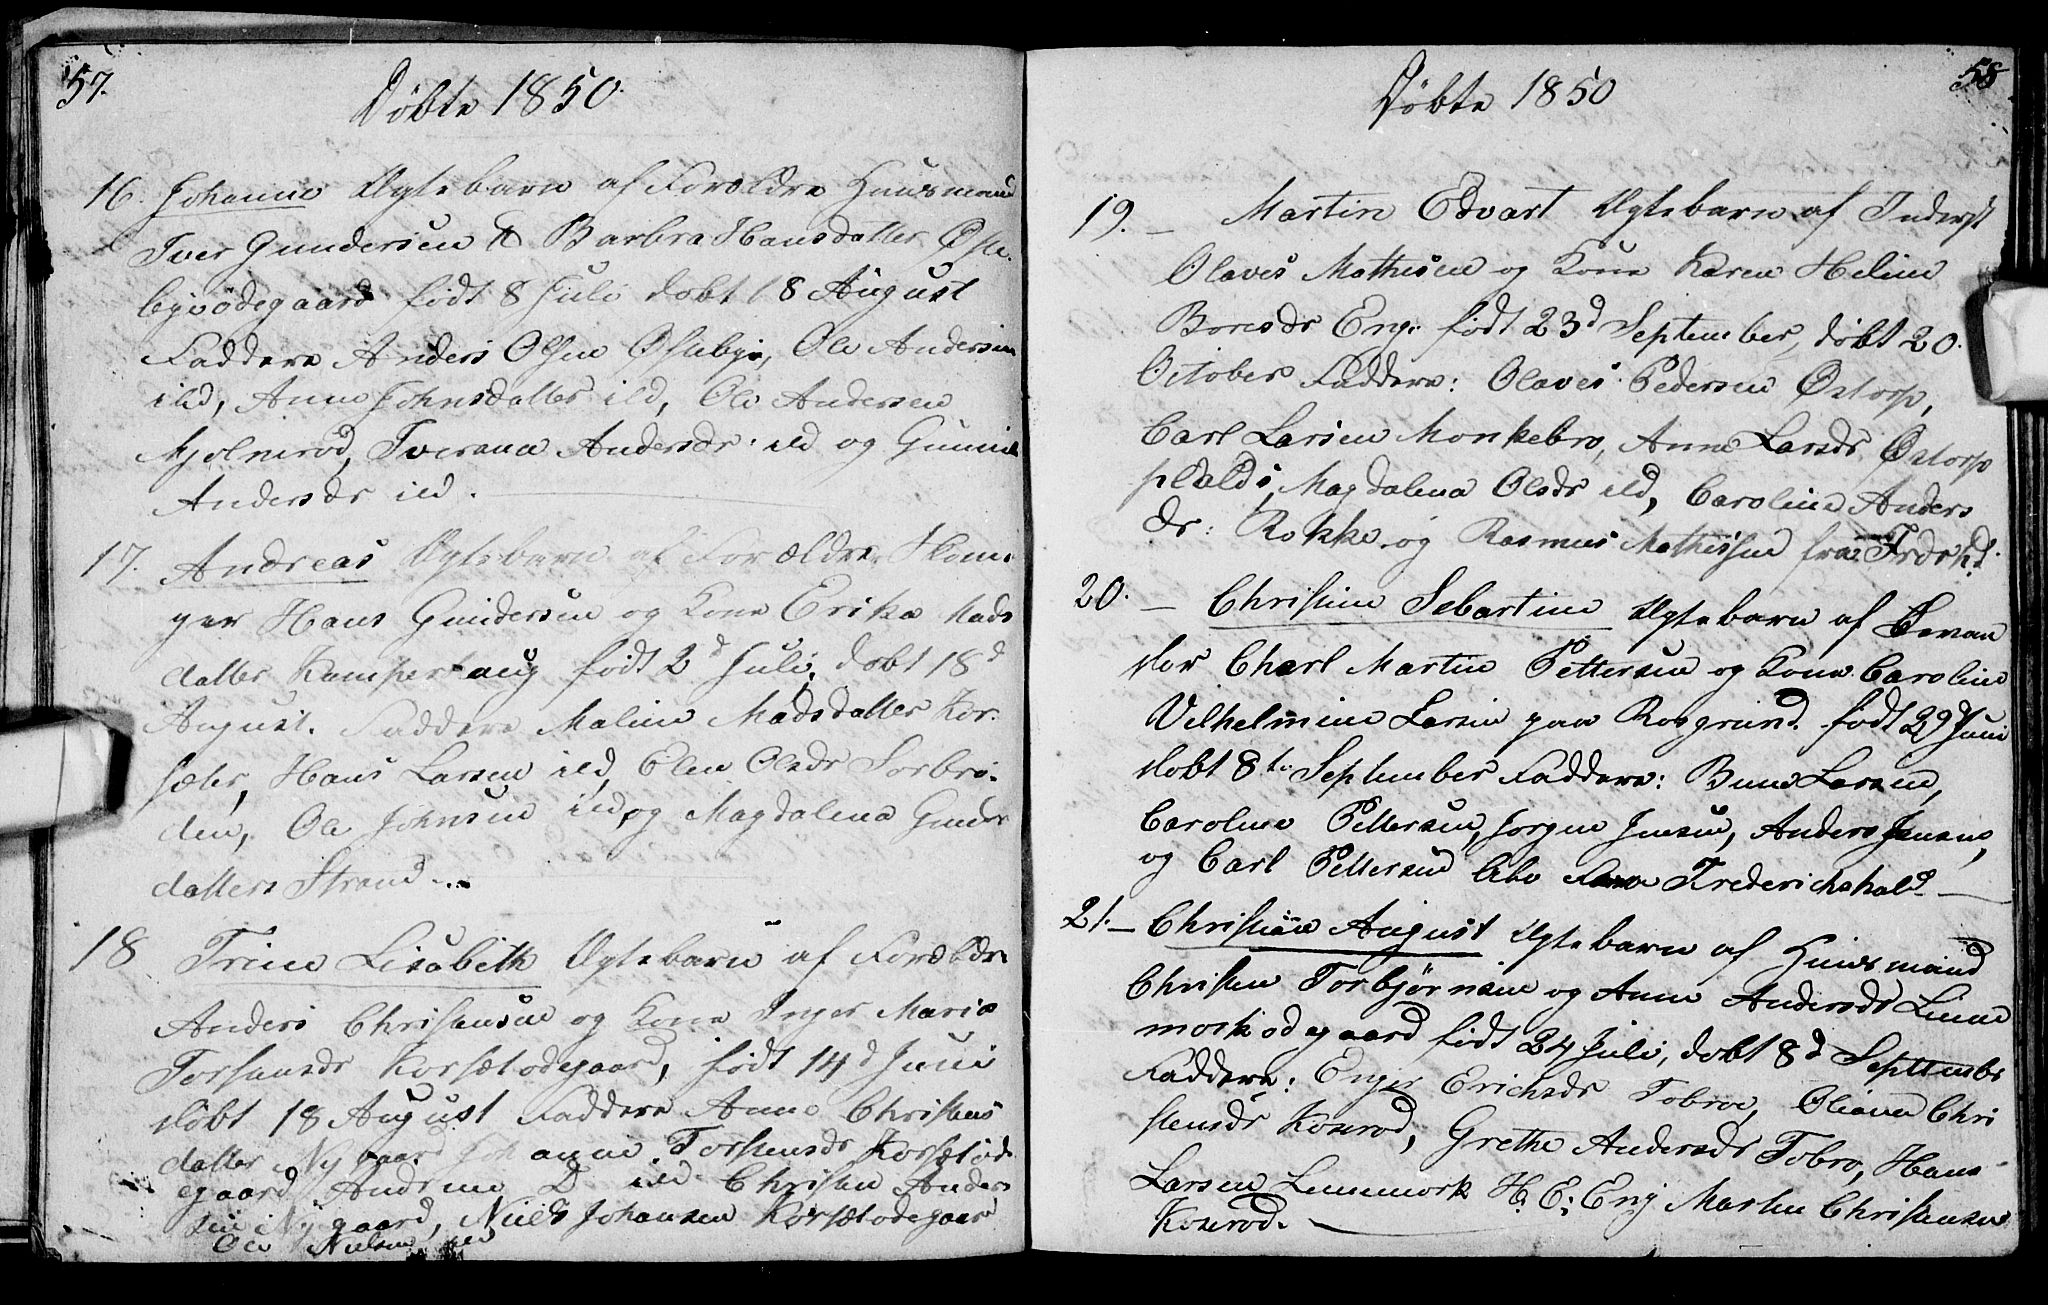 57.
Döbte 1850.
16. Johanne Ægtebarn af Forældre Huusmand
Iver Gundersen & Barbra Hansdatter Øste-
byeödegaard født 8 Juli døbt 18 August
Faddere Anders Olsen Østebye, Ole Andersen
ild, Anne Johnsdatter ild, Ole Andersen
Mjølnerød, Iverana Andersdr ild og Gunnil
Andersdr ild.
17. Andreas Ægtebarn af Forældre Skoma-
ger Hans Gundersen og Kone Erika Mads
datter Kamperhaug født 2d Juli, døbt 18d
August. Faddere Maline Madsdatter Kor-
sæter, Hans Larsen ild, Elen Olsdr Sorbrø-
den, Ole Johnsen ild, og Magdalena Gunder
datter Strand.
18 Trine Lisabeth Ægtebarn af Forældre
Anders Christensen og Kone Inger Maria
Torstensdr Korsætødegaard, født 14d Juni
døbt 18 August Faddere Anne Christens
datter Nygaard Johanne Torstensdr Korsætöde
egaard Andrine D ild Christen Ander
sen Nygaard, Niels Johansen Korsætødegaar
Ole Nielsen ild
58
Döbte 1850
19. - Martin Edvart Ægtebarn af Inderst
Olaves Mathisen og Kone Karen Heline
Boresdr Eng. født 23d September, døbt 20.
October Faddere: Olaves Pedersen Østorp,
Carl Larsen Monkebro, Anne Larsdr Østorp
plads, Magdalena Olsdr ild, Caroline Anders
dr: Rokke og Rasmus Mathissen fra Frdrhd.
20. - Christine Sebartine Ægtebarn af
Charl Martin Pettersen og Kone Caroline
Vilhelmine Larsen paa Rosgrund. født 29d Juni
døbt 8te September Faddere: Larsen,
Caroline Pettersen, Jørgen Jensen, Anders Jensens,
og Carl Pettersen Frederichshald
21. - Christian August Ægtebarn af Huusmand
Christen Torbjørnsen og Anne Andersdr Linne
morkødegaard født 24 Juli, døbt 8d September
Faddere: Enger Erichsdr Tobroe, Oliana Chri
stensdr Koserød, Grethe Andersdr Tobro, Hans
Larsen Linnemork H. E. Eng Marten Christensen
Koserød.